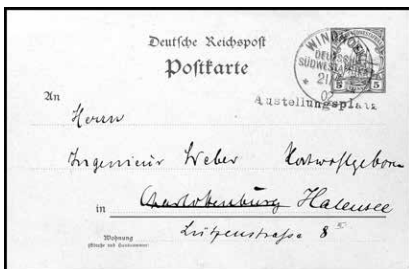 Deutsche Reichspost
Postkarte
WINDHOEK
DEUTSCH-
SÜDWESTAFRIKA
21
5 5
Austellungsplatz
An
Herrn
Ingenieur Weber
in Charlottenburg Halensee
Lützenstraße 8
Wohnung
(Straße und Hausnummer)